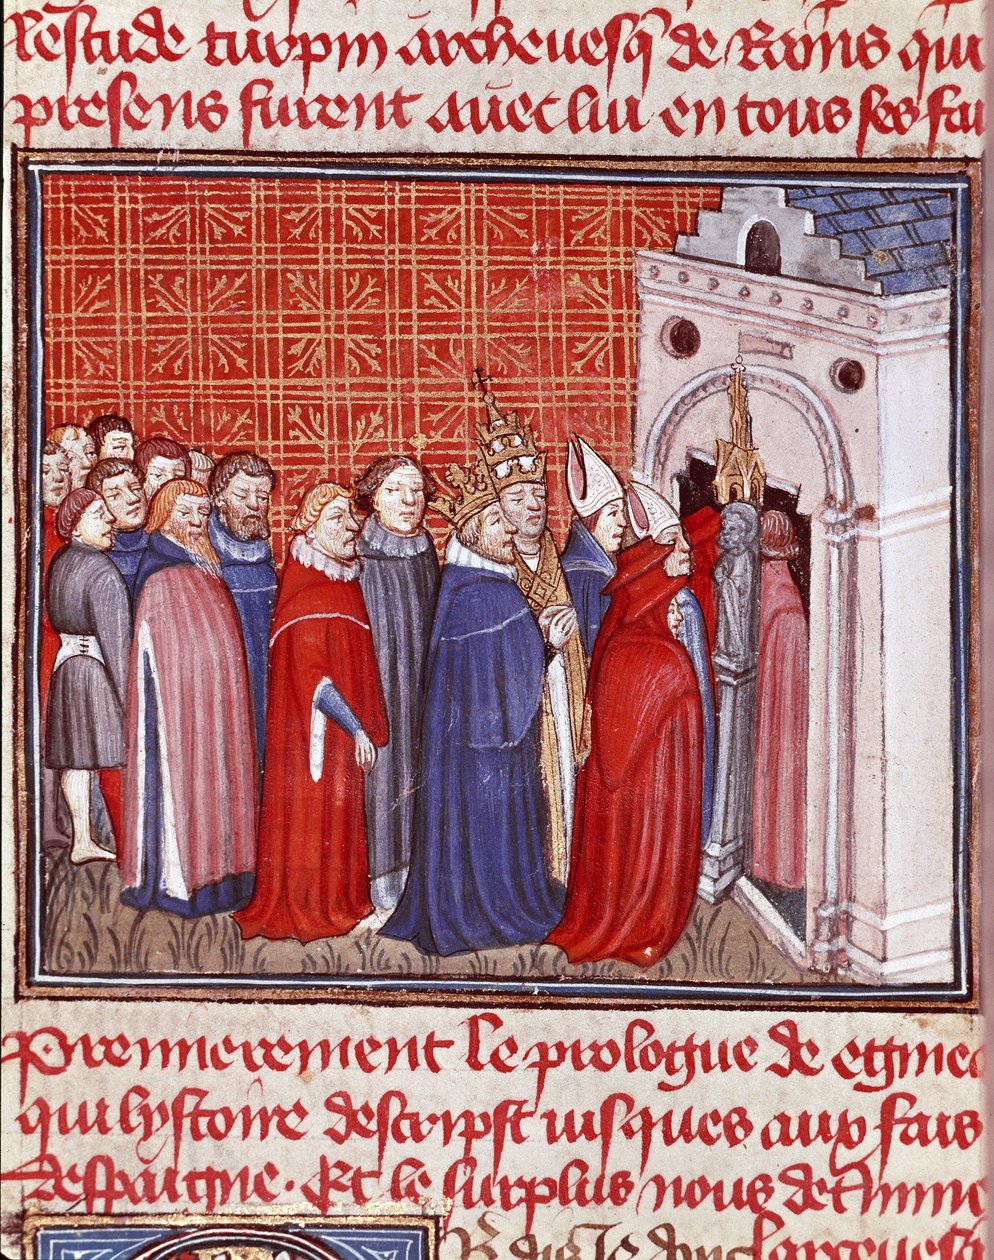 lestude turpin archeuesq̃ de Rains qui
presens furent auec lui en tous ses fai
Premierement le prologue de eginea
qui lystoire descript iusques aux fais
despaigne. Et le surplus nous determine